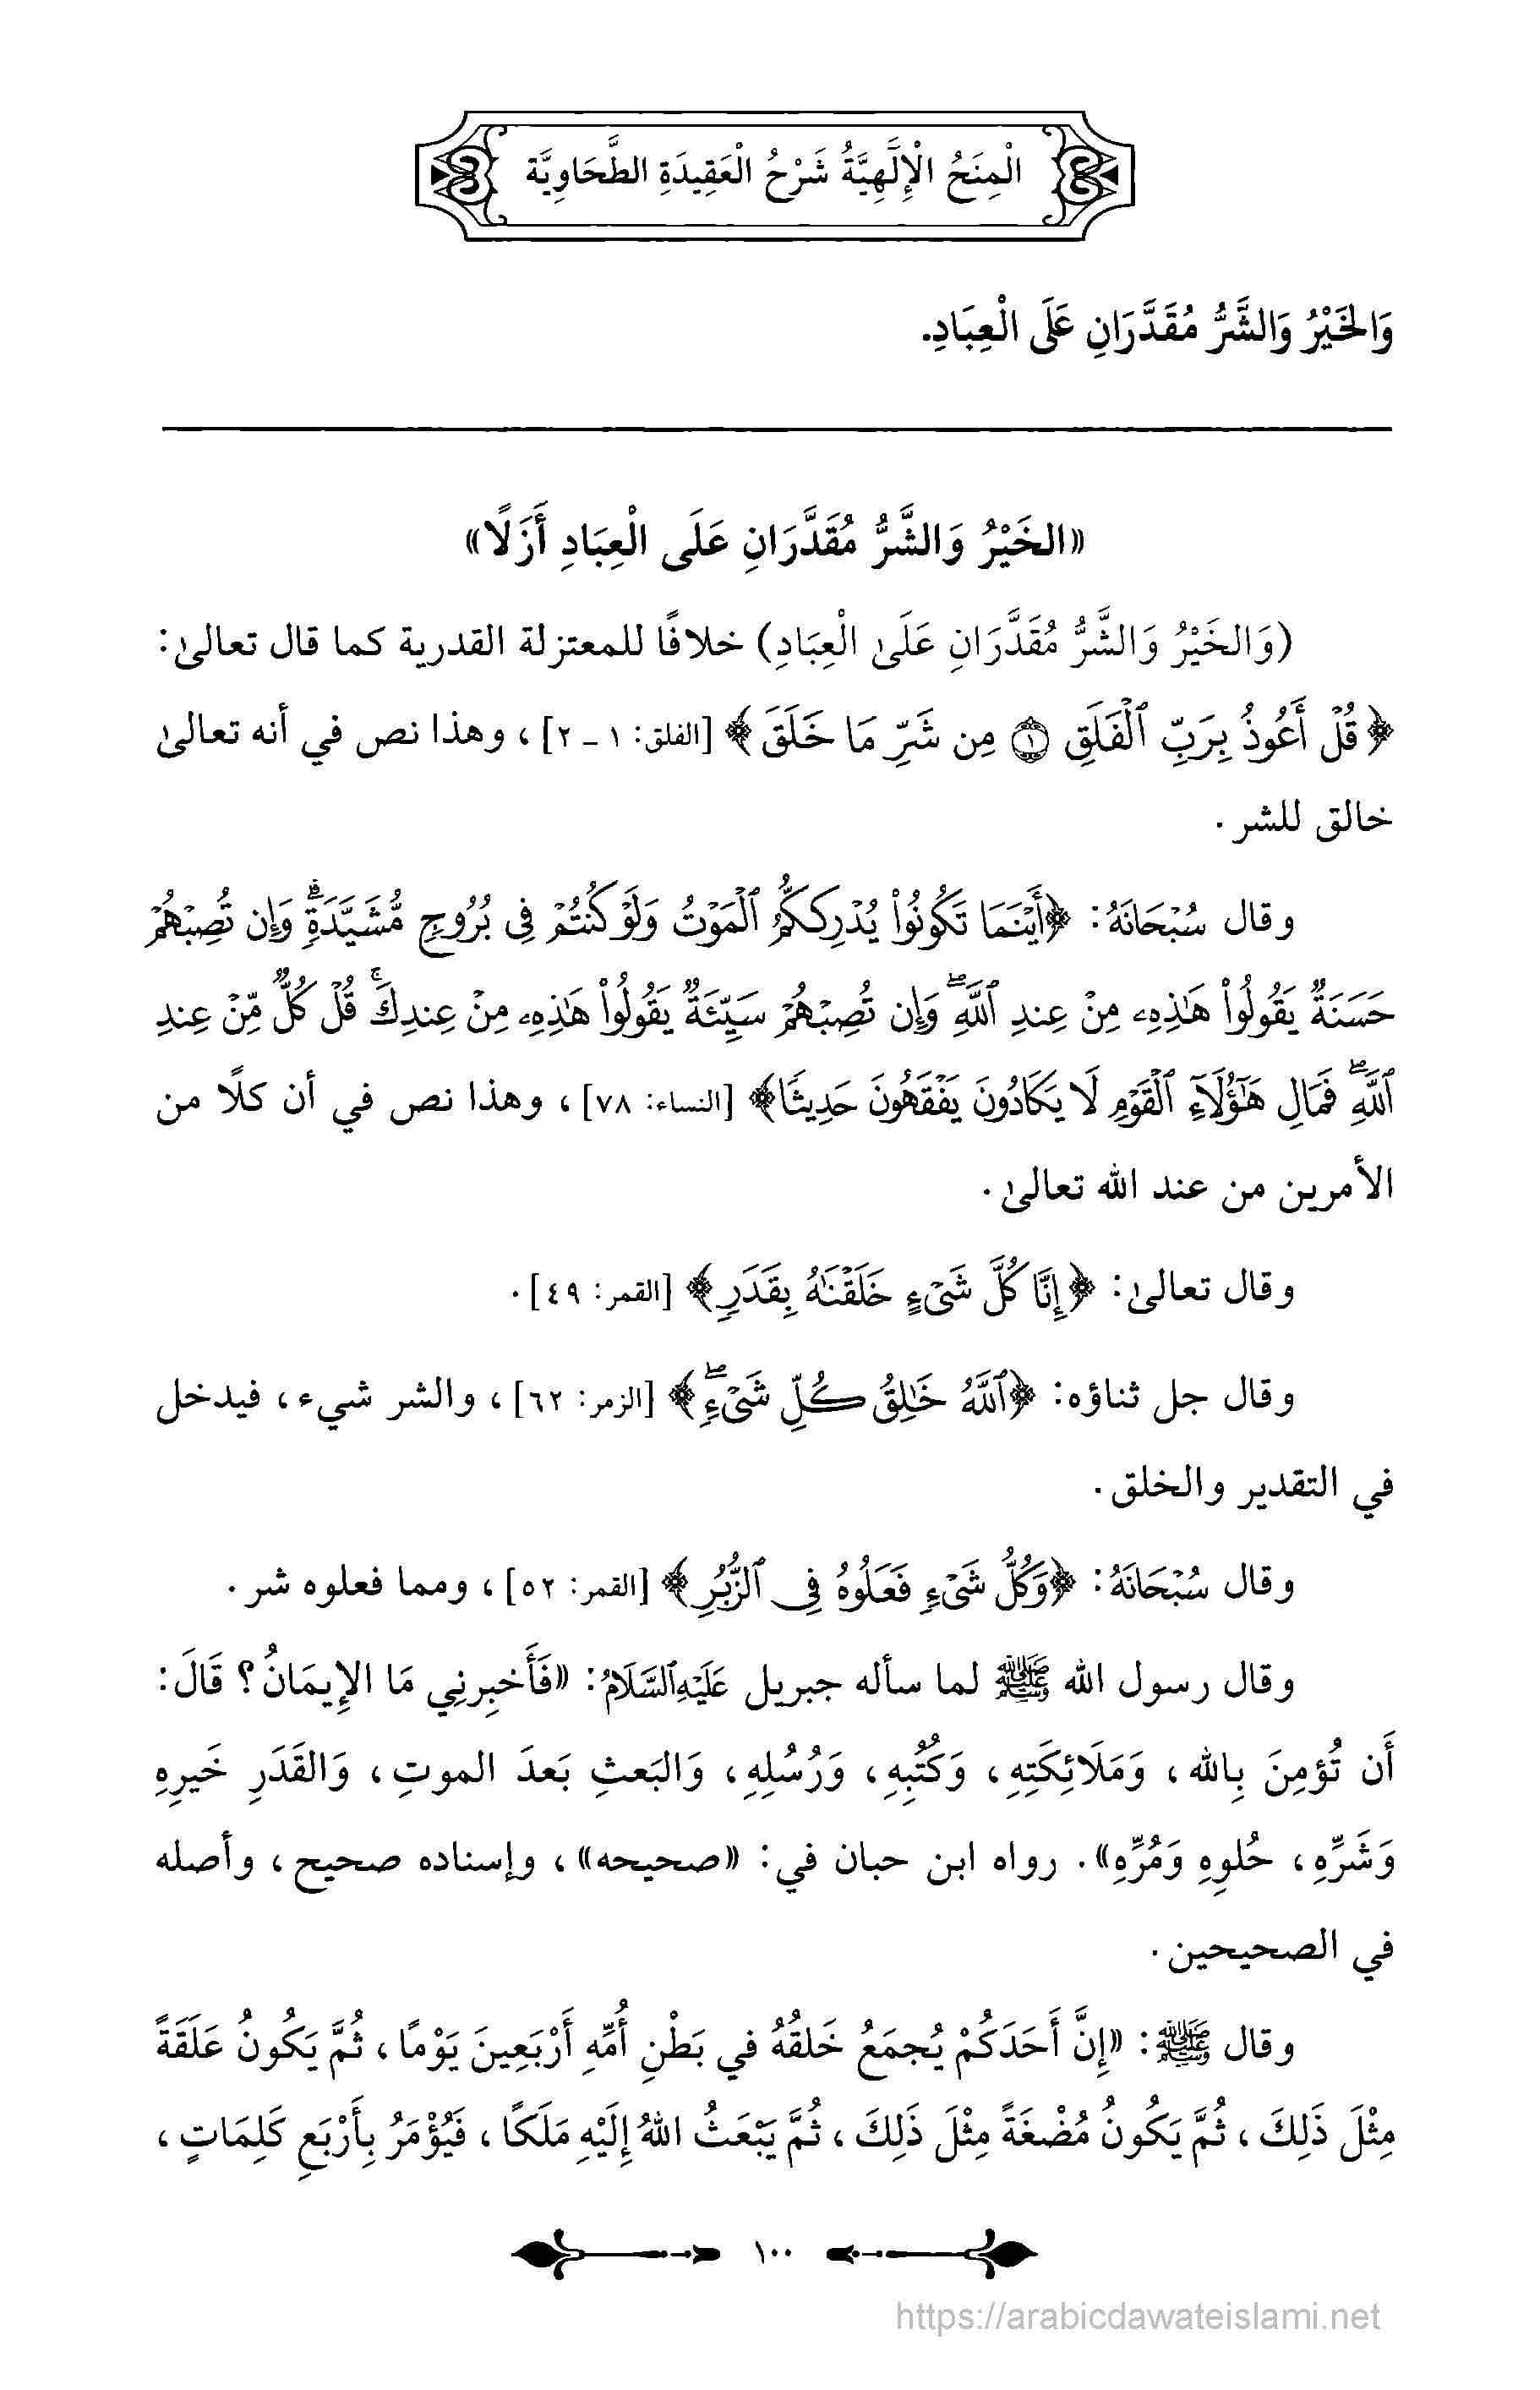 الْمِنَحُ الْإِلَهِيَّةُ شَرْحُ الْعَقِيدَةِ الطَّحَاوِيَّة
وَالخَيْرُ وَالشَّرُّ مُقَدَّرَانِ عَلَى الْعِبَادِ.
«الخَيْرُ وَالشَّرُّ مُقَدَّرَانِ عَلَى الْعِبَادِ أَزَلًا»
(وَالخَيْرُ وَالشَّرُّ مُقَدَّرَانِ عَلَىٰ الْعِبَادِ) خلافًا للمعتزلة القدرية كما قال تعالىٰ:
﴿قُلْ أَعُوذُ بِرَبِّ ٱلْفَلَقِ ۝١ مِن شَرِّ مَا خَلَقَ﴾ [الفلق: ١ - ٢]، وهذا نص في أنه تعالىٰ
خالق للشر.
وقال سُبْحَانَهُ: ﴿أَيْنَمَا تَكُونُوا۟ يُدْرِككُّمُ ٱلْمَوْتُ وَلَوْ كُنتُمْ فِى بُرُوجٍ مُّشَيَّدَةٍۗ وَإِن تُصِبْهُمْ
حَسَنَةٌ يَقُولُوا۟ هَـٰذِهِۦ مِنْ عِندِ ٱللَّهِۖ وَإِن تُصِبْهُمْ سَيِّئَةٌ يَقُولُوا۟ هَـٰذِهِۦ مِنْ عِندِكَۚ قُلْ كُلٌّ مِّنْ عِندِ
ٱللَّهِۖ فَمَالِ هَـٰٓؤُلَآءِ ٱلْقَوْمِ لَا يَكَادُونَ يَفْقَهُونَ حَدِيثًا﴾ [النساء: ٧٨]، وهذا نص في أن كلًا من
الأمرين من عند الله تعالىٰ.
وقال تعالىٰ: ﴿إِنَّا كُلَّ شَىْءٍ خَلَقْنَـٰهُ بِقَدَرٍ﴾ [القمر: ٤٩].
وقال جل ثناؤه: ﴿ٱللَّهُ خَـٰلِقُ كُلِّ شَىْءٍۖ﴾ [الزمر: ٦٢]، والشر شيء، فيدخل
في التقدير والخلق.
وقال سُبْحَانَهُ: ﴿وَكُلُّ شَىْءٍ فَعَلُوهُ فِى ٱلزُّبُرِ﴾ [القمر: ٥٢]، ومما فعلوه شر.
وقال رسول الله ﷺ لما سأله جبريل عَلَيْهِ ٱلسَّلَامُ: «فَأَخبِرنِي مَا الإِيمَانُ؟ قَالَ:
أَن تُؤمِنَ بِالله، وَمَلَائِكَتِهِ، وَكُتُبِهِ، وَرُسُلِهِ، وَالبَعثِ بَعدَ الموتِ، وَالقَدَرِ خَيرِهِ
وَشَرِّهِ، حُلوِهِ وَمُرِّهِ». رواه ابن حبان في: «صحيحه»، وإسناده صحيح، وأصله
في الصحيحين.
وقال ﷺ: «إِنَّ أَحَدَكُمْ يُجمَعُ خَلقُهُ في بَطْنِ أُمِّهِ أَرْبَعِينَ يَوْمًا، ثُمَّ يَكُونُ عَلَقَةً
مِثْلَ ذَلِكَ، ثُمَّ يَكُونُ مُضْغَةً مِثْلَ ذَلِكَ، ثُمَّ يَبْعَثُ اللهُ إِلَيْهِ مَلَكًا، فَيُؤْمَرُ بِأَرْبَعِ كَلِمَاتٍ،
١٠٠
https://arabicdawateislami.net